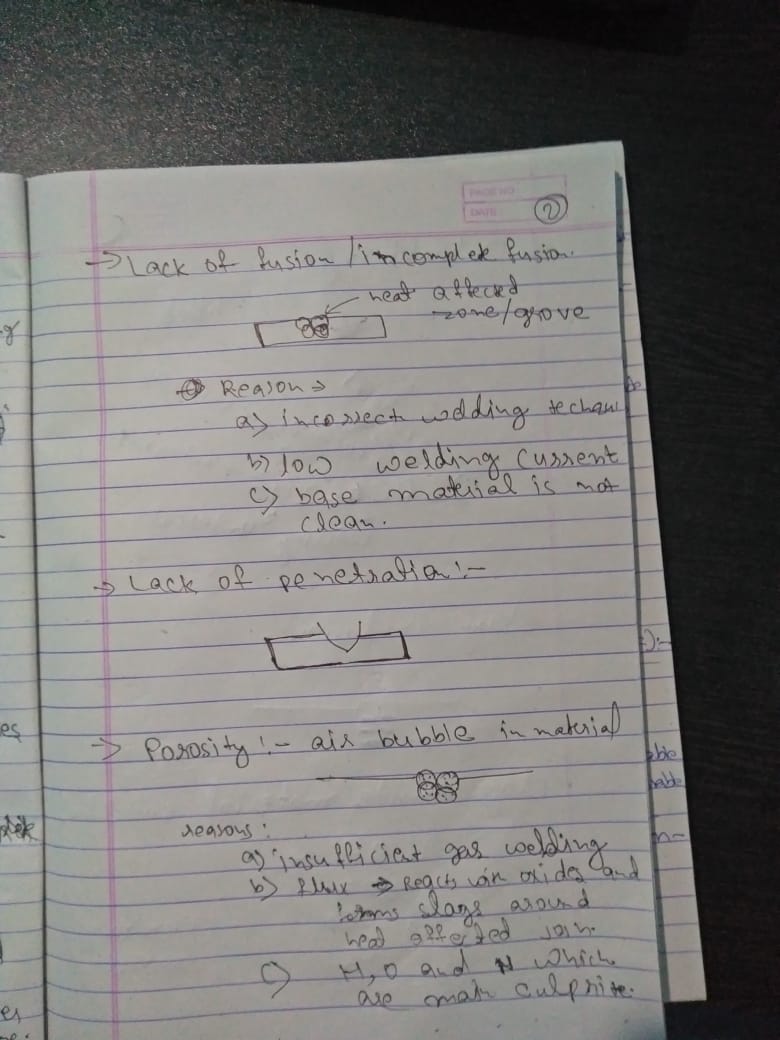 PAGE NO
DATE
2
→ Lack of fusion / incomplek fusion.
heat affecked
zone/grove
Reason →
a) incorrect welding techani
b) low welding current
c) base material is not
clean.
→ Lack of penetration :-
→ Porosity :- air bubble in material
reasons :
a) insufficient gas welding
b) flux → Reacts with oxides and
forms slags around
heat affected join.
c) H, O and N which
are main culprite.